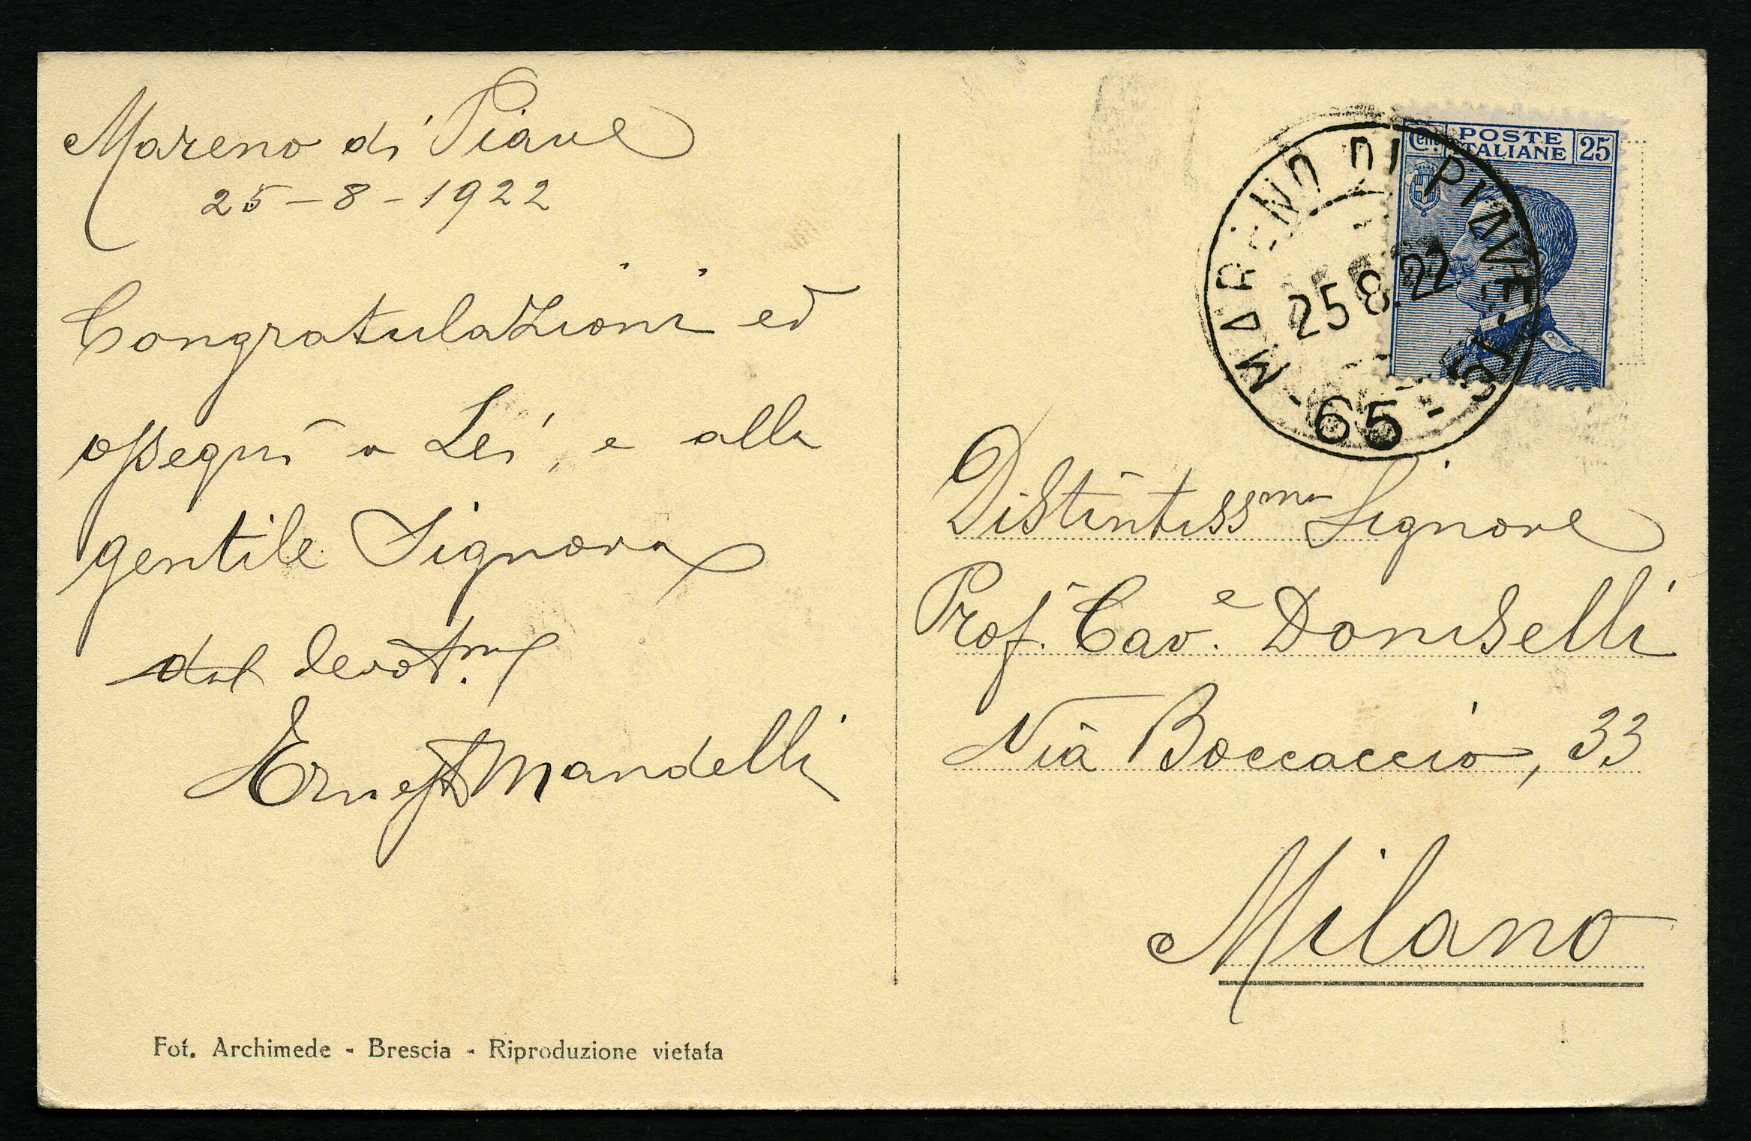 Mareno di Piave
25-8-1922
Congratulazioni ed
ossequi a Lei, e alla
gentile Signora
dal devot.mo
Ernesto Mandelli
Fot. Archimede - Brescia - Riproduzione vietata
Cent. POSTE ITALIANE 25
MARENO DI PIAVE
25.8.22
-65-
Distintissmo Signore
Prof. Cav.e Doniselli
Via Boccaccio, 33
Milano